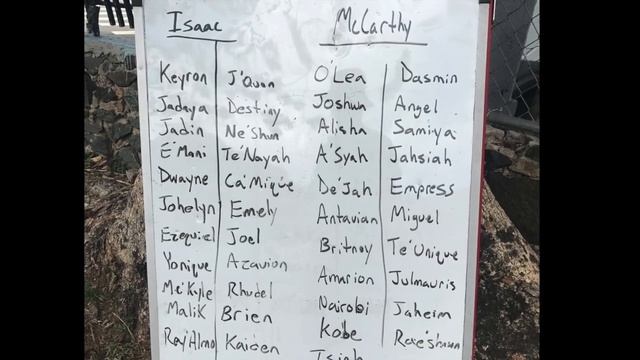 Isaac McCarthy
Keyron J'Quan O'Lea Dasmin
Jadaya Destiny Joshua Angel
Jadin Ne'Shun Alisha Samiya
E'Mani Te'Nayah A'Syah Jahsiah
Dwayne Ca'Mique De'Jah Empress
Johelyn Emely Antavian Miguel
Ezequiel Joel Britney Te'Unique
Yonique Azavion Amarion Julmauris
Me'Kyle Rhudel Nairobi Jaheim
Malik Brien Kobe
Kaiden